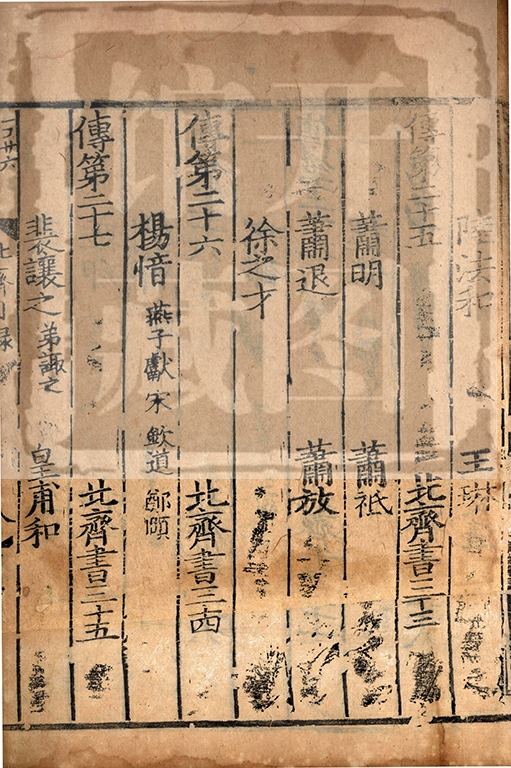 陸法和 王琳
傳第二十五 北齊書三十三
蕭明 蕭祗
蕭退 蕭放
徐之才
傳第二十六 北齊書三十四
楊愔 燕子獻 宋欽道 鄭頤
傳第二十七 北齊書三十五
裴讓之 弟諏之 皇甫和